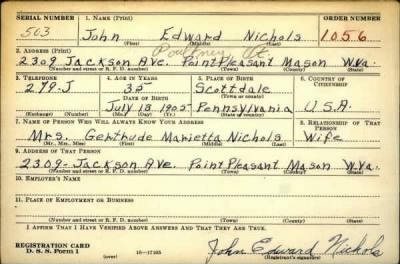 SERIAL NUMBER 1. NAME (Print) ORDER NUMBER
503 John Edward Nichols 1056
(First) (Middle) (Last)
Poultney Vt.
2. ADDRESS (Print)
2309 Jackson Ave. Point Pleasant Mason W.Va.
(Number and street or R. F. D. number) (Town) (County) (State)
3. TELEPHONE 4. AGE IN YEARS 5. PLACE OF BIRTH 6. COUNTRY OF CITIZENSHIP
279-J 35 Scottdale
DATE OF BIRTH (Town or county)
July 18 1905 Pennsylvania U.S.A.
(Exchange) (Number) (Mo.) (Day) (Yr.) (State or country)
7. NAME OF PERSON WHO WILL ALWAYS KNOW YOUR ADDRESS 8. RELATIONSHIP OF THAT PERSON
Mrs. Gertrude Marietta Nichols Wife
(Mr., Mrs., Miss) (First) (Middle) (Last)
9. ADDRESS OF THAT PERSON
2309- Jackson Ave. Point Pleasant Mason W.Va.
(Number and street or R. F. D. number) (Town) (County) (State)
10. EMPLOYER'S NAME
11. PLACE OF EMPLOYMENT OR BUSINESS
(Number and street or R. F. D. number) (Town) (County) (State)
I AFFIRM THAT I HAVE VERIFIED ABOVE ANSWERS AND THAT THEY ARE TRUE.
REGISTRATION CARD
D. S. S. Form 1 (over) 16-17105 John Edward Nichols
(Registrant's signature)